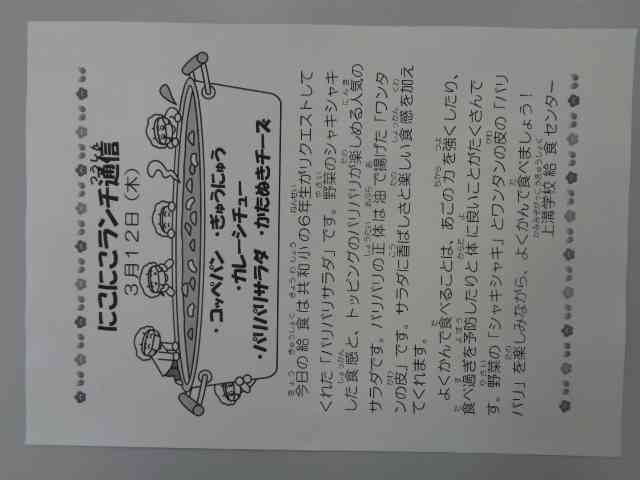 にこにこランチ通信
３月１２日（木）
・コッペパン ・ぎゅうにゅう
・カレーシチュー
・パリパリサラダ ・かたぬきチーズ
今日の給食は共和小の６年生がリクエストして
くれた「パリパリサラダ」です。野菜のシャキシャキ
した食感と、トッピングのパリパリが楽しめる人気の
サラダです。パリパリの正体は油で揚げた「ワンタ
ンの皮」です。サラダに香ばしさと楽しい食感を加え
てくれます。
よくかんで食べることは、あごの力を強くしたり、
食べ過ぎを予防したりと体に良いことがたくさんで
す。野菜の「シャキシャキ」とワンタンの皮の「パリ
パリ」を楽しみながら、よくかんで食べましょう！
上溝学校給食センター